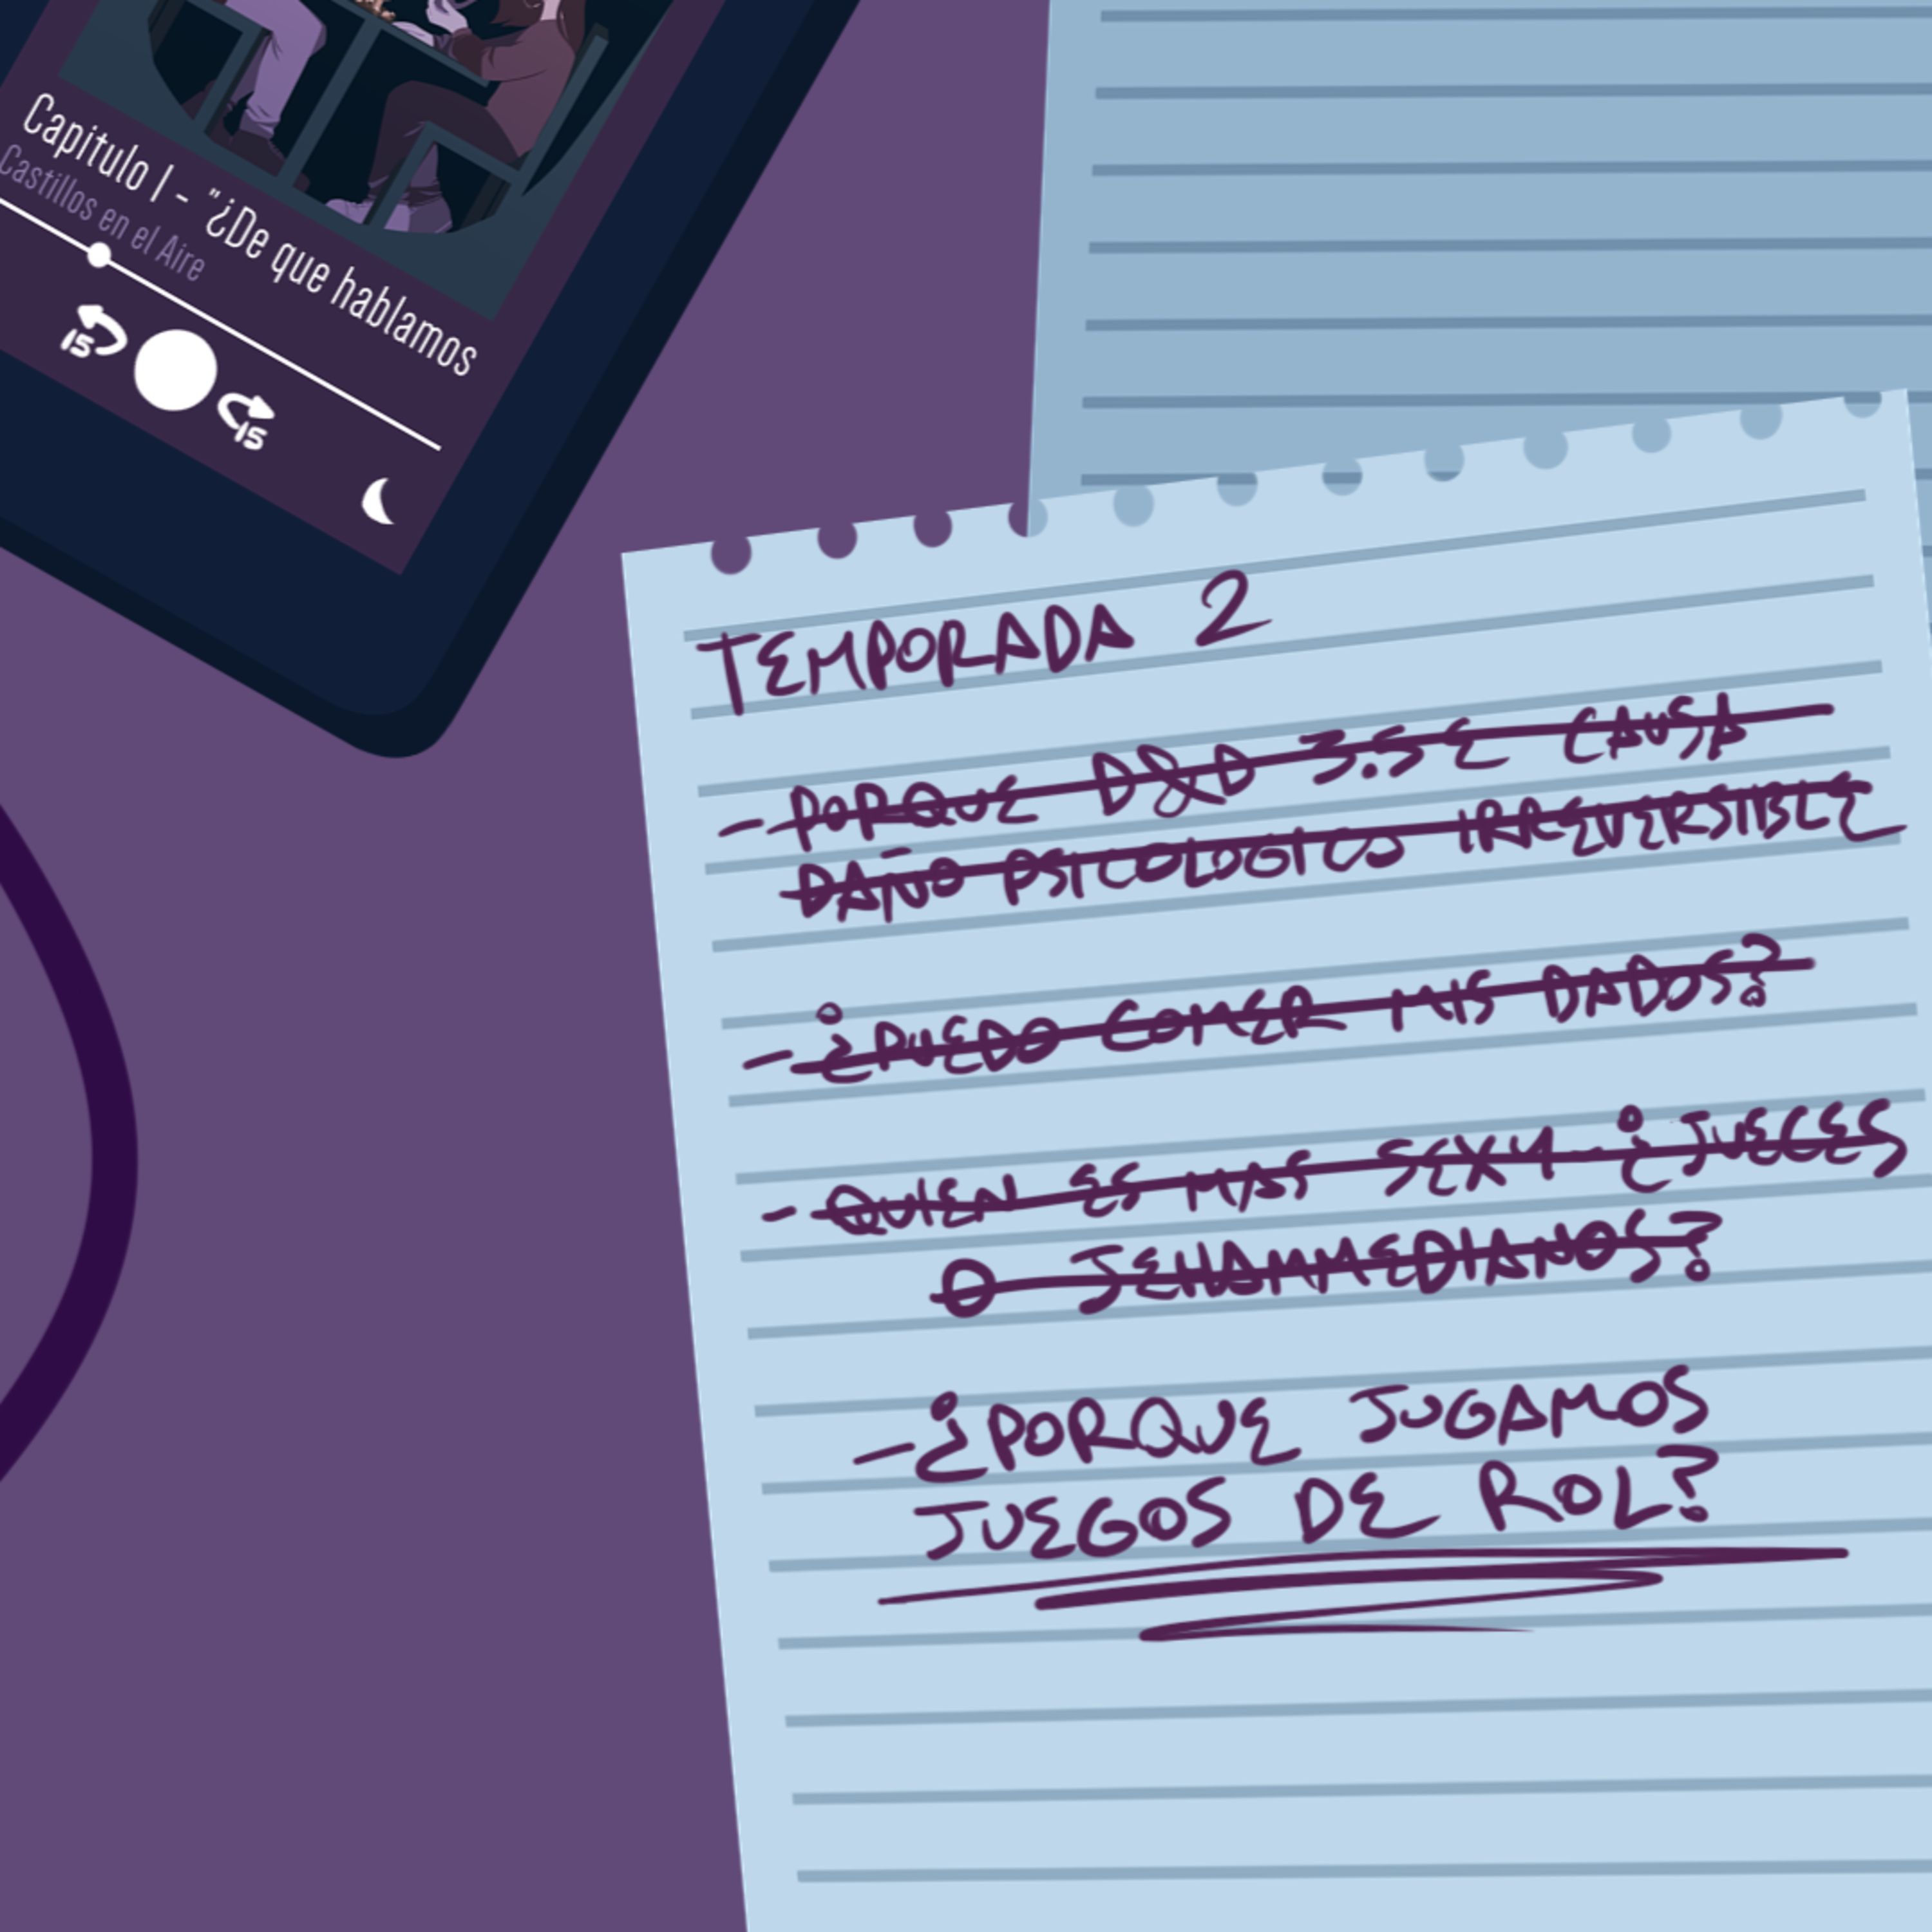 Capitulo 1 - "¿De que hablamos
Castillos en el Aire
15
15
TEMPORADA 2
- PORQUE D&D 3.5E CAUSA
DAÑO PSICOLOGICO IRREVERSIBLE
- ¿PUEDO COMER MIS DADOS?
- QUIEN ES MAS SEXY ¿JUECES
O JEHAMMEDIANOS?
- ¿PORQUE JUGAMOS
JUEGOS DE ROL?